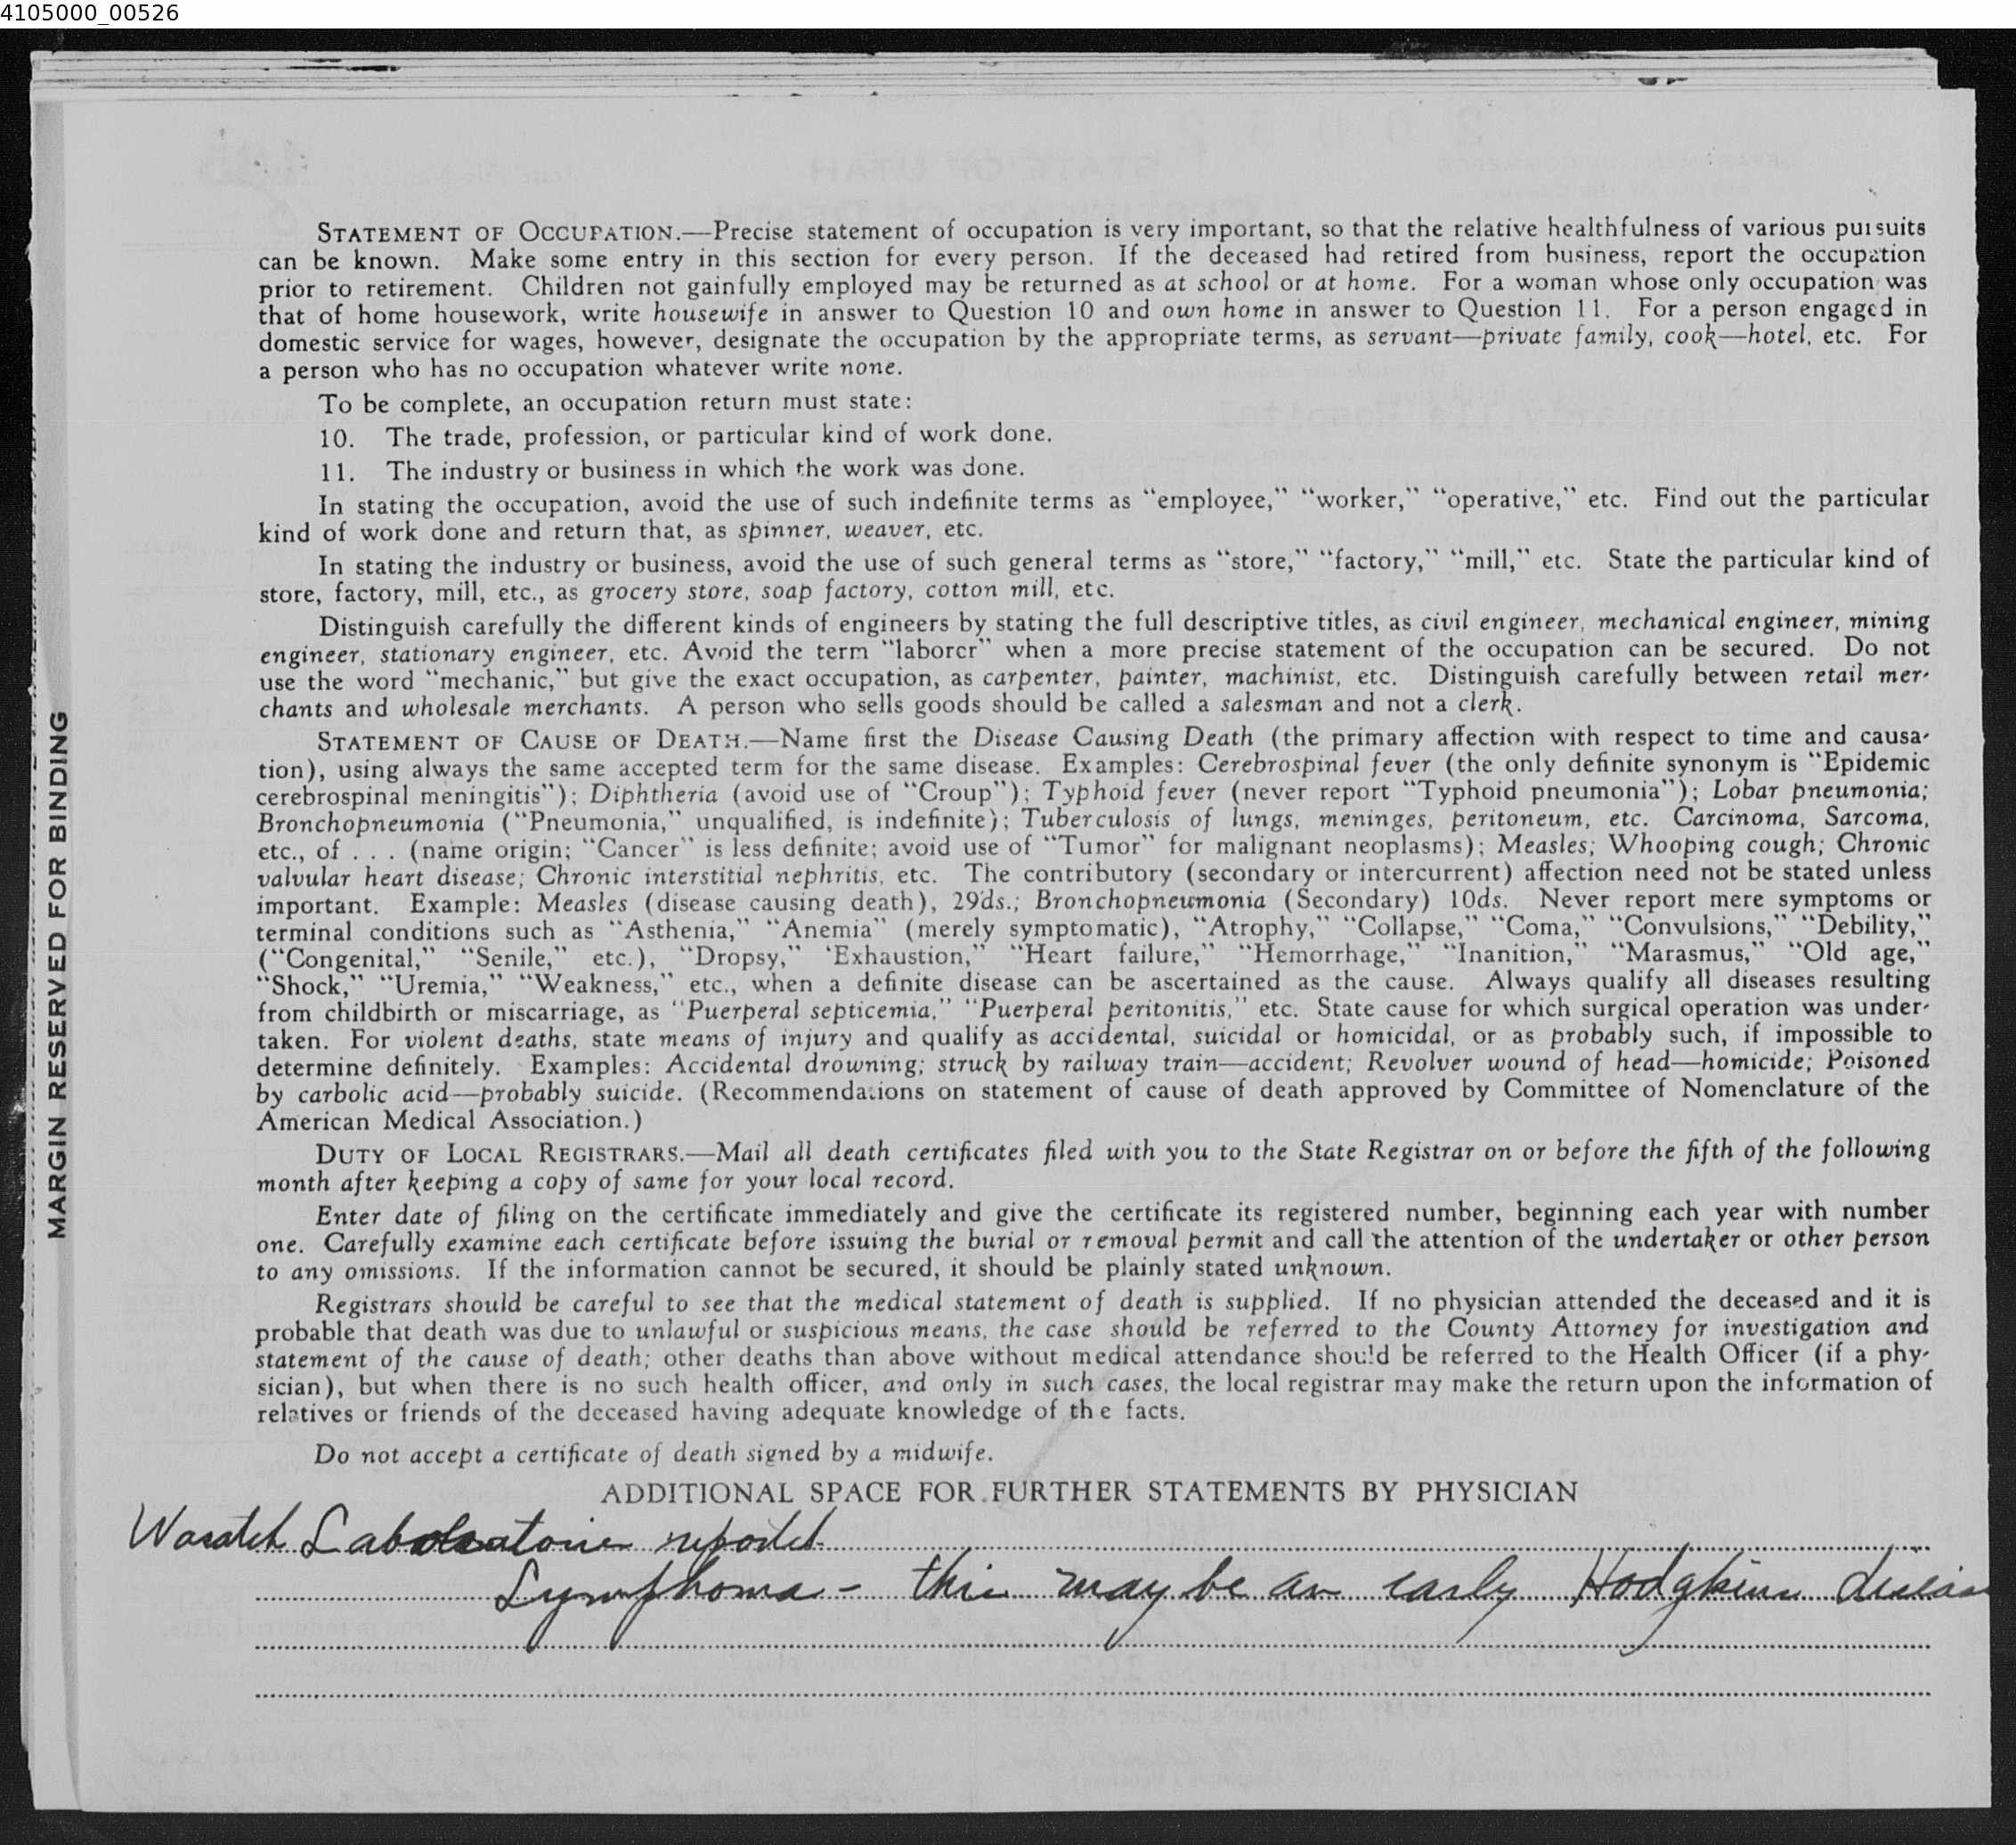 4105000_00526
STATEMENT OF OCCUPATION.—Precise statement of occupation is very important, so that the relative healthfulness of various pursuits
can be known. Make some entry in this section for every person. If the deceased had retired from business, report the occupation
prior to retirement. Children not gainfully employed may be returned as at school or at home. For a woman whose only occupation was
that of home housework, write housewife in answer to Question 10 and own home in answer to Question 11. For a person engaged in
domestic service for wages, however, designate the occupation by the appropriate terms, as servant—private family, cook—hotel, etc. For
a person who has no occupation whatever write none.
To be complete, an occupation return must state:
10. The trade, profession, or particular kind of work done.
11. The industry or business in which the work was done.
In stating the occupation, avoid the use of such indefinite terms as "employee," "worker," "operative," etc. Find out the particular
kind of work done and return that, as spinner, weaver, etc.
In stating the industry or business, avoid the use of such general terms as "store," "factory," "mill," etc. State the particular kind of
store, factory, mill, etc., as grocery store, soap factory, cotton mill, etc.
Distinguish carefully the different kinds of engineers by stating the full descriptive titles, as civil engineer, mechanical engineer, mining
engineer, stationary engineer, etc. Avoid the term "laborer" when a more precise statement of the occupation can be secured. Do not
use the word "mechanic," but give the exact occupation, as carpenter, painter, machinist, etc. Distinguish carefully between retail mer-
chants and wholesale merchants. A person who sells goods should be called a salesman and not a clerk.
STATEMENT OF CAUSE OF DEATH.—Name first the Disease Causing Death (the primary affection with respect to time and causa-
tion), using always the same accepted term for the same disease. Examples: Cerebrospinal fever (the only definite synonym is "Epidemic
cerebrospinal meningitis"); Diphtheria (avoid use of "Croup"); Typhoid fever (never report "Typhoid pneumonia"); Lobar pneumonia;
Bronchopneumonia ("Pneumonia," unqualified, is indefinite); Tuberculosis of lungs, meninges, peritoneum, etc. Carcinoma, Sarcoma,
etc., of . . . (name origin; "Cancer" is less definite; avoid use of "Tumor" for malignant neoplasms); Measles; Whooping cough; Chronic
valvular heart disease; Chronic interstitial nephritis, etc. The contributory (secondary or intercurrent) affection need not be stated unless
important. Example: Measles (disease causing death), 29ds.; Bronchopneumonia (Secondary) 10ds. Never report mere symptoms or
terminal conditions such as "Asthenia," "Anemia" (merely symptomatic), "Atrophy," "Collapse," "Coma," "Convulsions," "Debility,"
("Congenital," "Senile," etc.), "Dropsy," 'Exhaustion," "Heart failure," "Hemorrhage," "Inanition," "Marasmus," "Old age,"
"Shock," "Uremia," "Weakness," etc., when a definite disease can be ascertained as the cause. Always qualify all diseases resulting
from childbirth or miscarriage, as "Puerperal septicemia," "Puerperal peritonitis," etc. State cause for which surgical operation was under-
taken. For violent deaths, state means of injury and qualify as accidental, suicidal or homicidal, or as probably such, if impossible to
determine definitely. Examples: Accidental drowning; struck by railway train—accident; Revolver wound of head—homicide; Poisoned
by carbolic acid—probably suicide. (Recommendations on statement of cause of death approved by Committee of Nomenclature of the
American Medical Association.)
DUTY OF LOCAL REGISTRARS.—Mail all death certificates filed with you to the State Registrar on or before the fifth of the following
month after keeping a copy of same for your local record.
Enter date of filing on the certificate immediately and give the certificate its registered number, beginning each year with number
one. Carefully examine each certificate before issuing the burial or removal permit and call the attention of the undertaker or other person
to any omissions. If the information cannot be secured, it should be plainly stated unknown.
Registrars should be careful to see that the medical statement of death is supplied. If no physician attended the deceased and it is
probable that death was due to unlawful or suspicious means, the case should be referred to the County Attorney for investigation and
statement of the cause of death; other deaths than above without medical attendance should be referred to the Health Officer (if a phy-
sician), but when there is no such health officer, and only in such cases, the local registrar may make the return upon the information of
relatives or friends of the deceased having adequate knowledge of the facts.
Do not accept a certificate of death signed by a midwife.
ADDITIONAL SPACE FOR FURTHER STATEMENTS BY PHYSICIAN
Wasatch Laboratories reported
Lymphoma - this may be an early Hodgkins disease
MARGIN RESERVED FOR BINDING